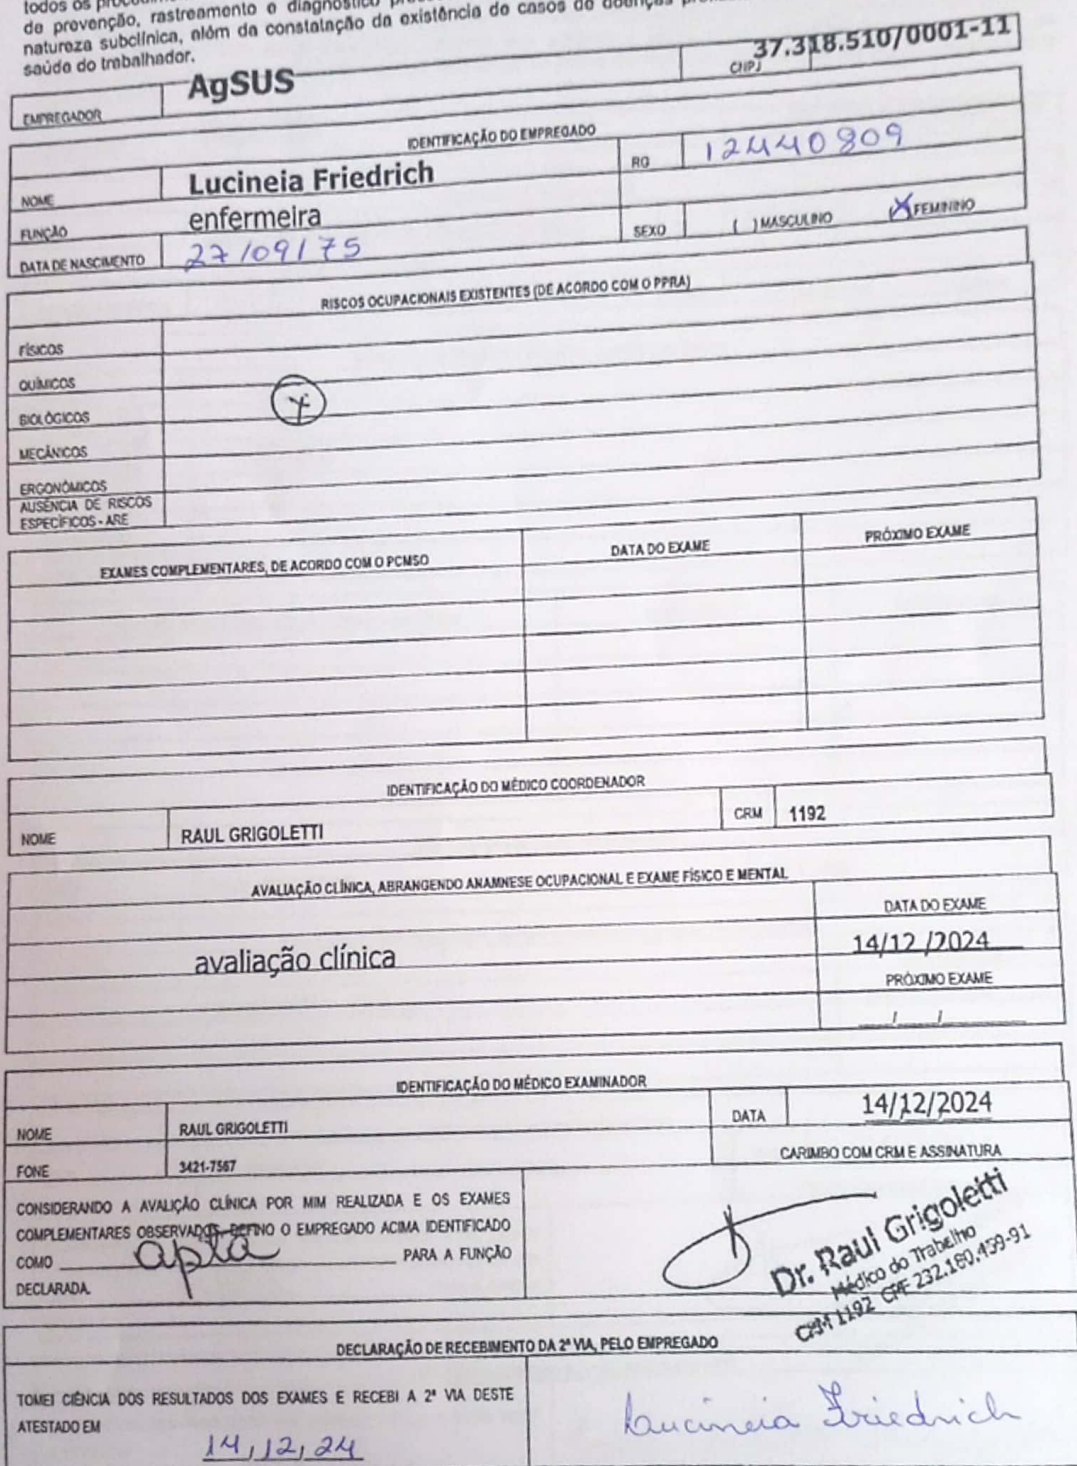 todos os
de prevenção, rastreamento e diagnóstico
natureza subclínica, além da constatação da existência de casos de doenças
saúde do trabalhador.
EMPREGADOR AgSUS CNPJ 37.318.510/0001-11
IDENTIFICAÇÃO DO EMPREGADO
NOME Lucineia Friedrich RG 12440809
FUNÇÃO enfermeira
DATA DE NASCIMENTO 27/09/75 SEXO ( ) MASCULINO (X) FEMININO
RISCOS OCUPACIONAIS EXISTENTES (DE ACORDO COM O PPRA)
FÍSICOS
QUÍMICOS
BIOLÓGICOS X
MECÂNICOS
ERGONÔMICOS
AUSÊNCIA DE RISCOS
ESPECÍFICOS - ARE
EXAMES COMPLEMENTARES, DE ACORDO COM O PCMSO DATA DO EXAME PRÓXIMO EXAME
IDENTIFICAÇÃO DO MÉDICO COORDENADOR
NOME RAUL GRIGOLETTI CRM 1192
AVALIAÇÃO CLÍNICA, ABRANGENDO ANAMNESE OCUPACIONAL E EXAME FÍSICO E MENTAL
DATA DO EXAME
avaliação clínica 14/12/2024
PRÓXIMO EXAME
__/__/____
IDENTIFICAÇÃO DO MÉDICO EXAMINADOR
NOME RAUL GRIGOLETTI DATA 14/12/2024
FONE 3421-7567 CARIMBO COM CRM E ASSINATURA
CONSIDERANDO A AVALIÇÃO CLÍNICA POR MIM REALIZADA E OS EXAMES
COMPLEMENTARES OBSERVADOS, DEFINO O EMPREGADO ACIMA IDENTIFICADO
COMO apta PARA A FUNÇÃO
DECLARADA.
Dr. Raul Grigoletti
Médico do Trabalho
CRM 1192 CPF 232.160.459-91
DECLARAÇÃO DE RECEBIMENTO DA 2ª VIA, PELO EMPREGADO
TOMEI CIÊNCIA DOS RESULTADOS DOS EXAMES E RECEBI A 2ª VIA DESTE
ATESTADO EM
14,12,24
Lucineia Friedrich